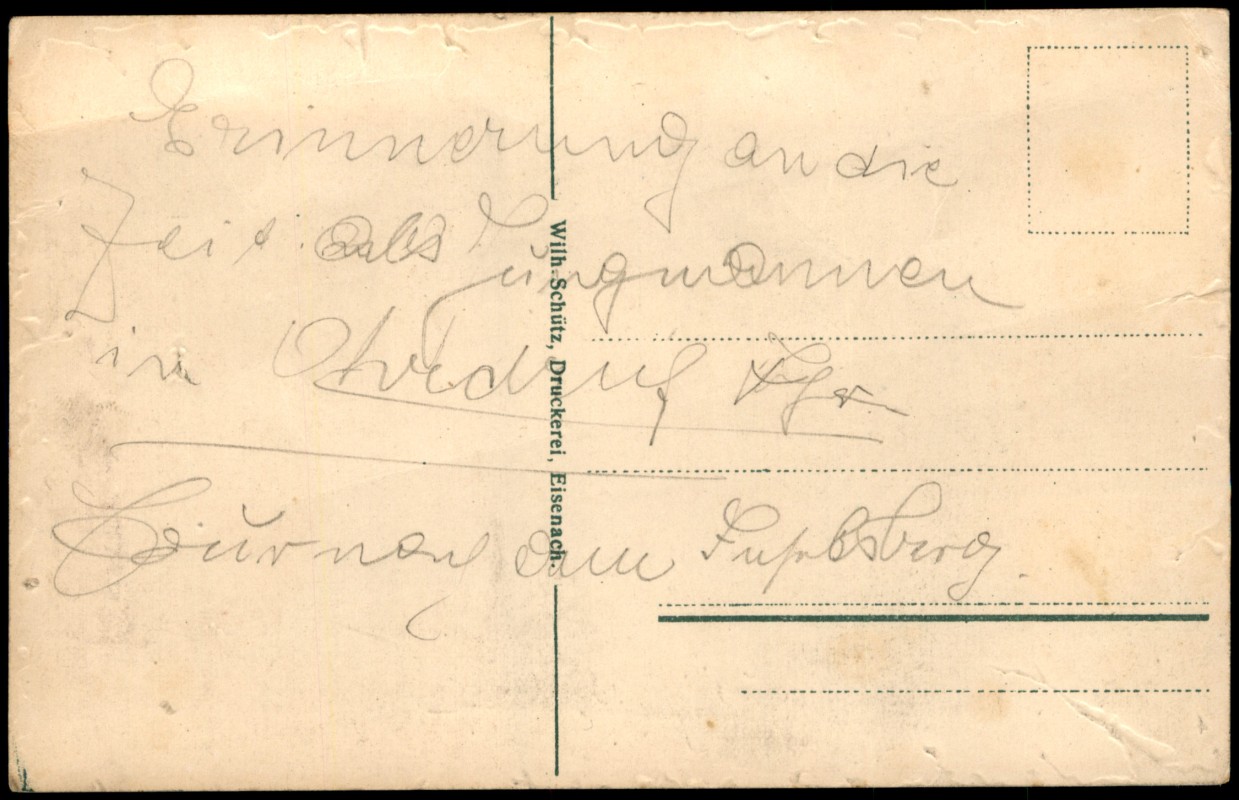 Erinnerung an die
Zeit als Jungmannen
in Ohrdruf Thür.
am
Wilh. Schütz, Druckerei, Eisenach.